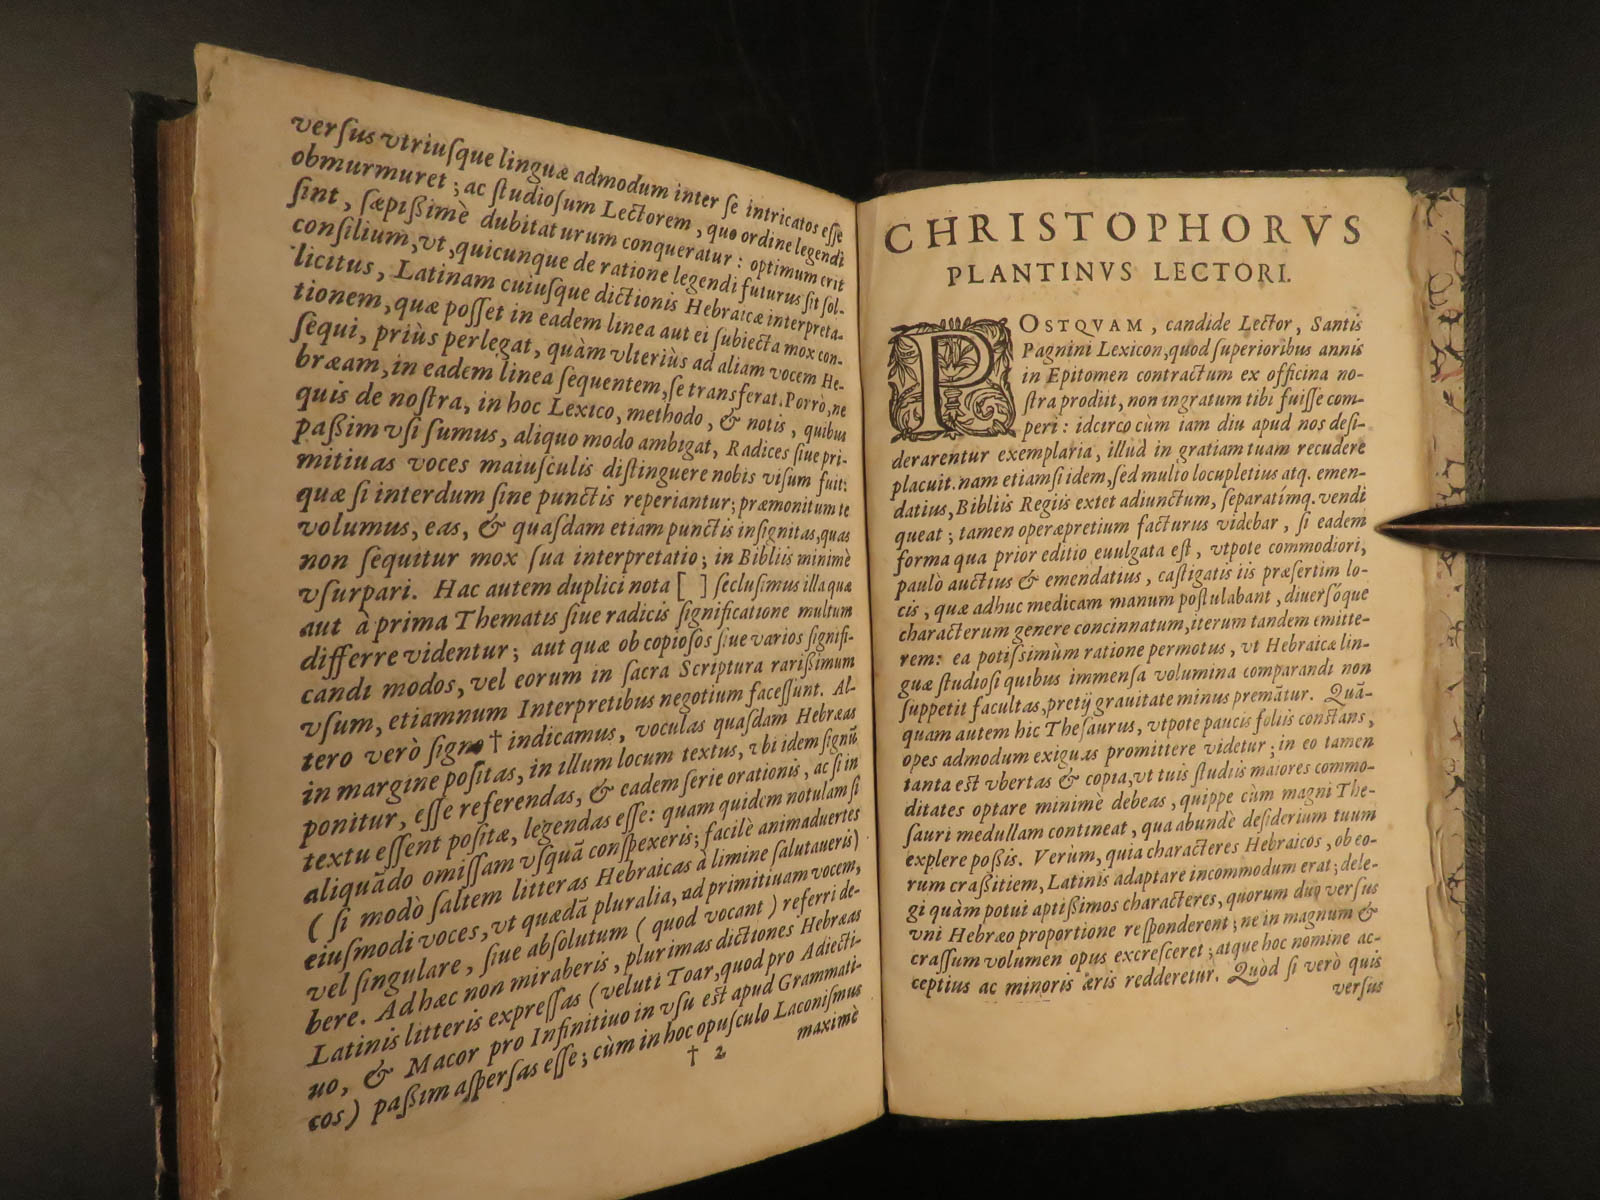 CHRISTOPHORVS
PLANTINVS LECTORI.
POSTQVAM, candide Lector, Santis
Pagnini Lexicon, quod ſuperioribus annis
in Epitomen contractum ex officina no-
ſtra prodiit, non ingratum tibi fuiſſe com-
peri: idcirco cùm iam diu apud nos deſi-
derarentur exemplaria, illud in gratiam tuam recudere
placuit. nam etiamſi idem, ſed multo locupletius atq. emen-
datius, Bibliis Regiis extet adiunctum, ſeparatímq. vendi
queat; tamen operæpretium facturus videbar, ſi eadem
forma qua prior editio euulgata eſt, vtpote commodiori,
paulò auctius & emendatius, caſtigatis iis præſertim lo-
cis, quæ adhuc medicam manum poſtulabant, diuerſóque
characterum genere concinnatum, iterum tandem emitte-
rem: ea potiſſimùm ratione permotus, vt Hebraicæ lin-
guæ ſtudioſi quibus immenſa volumina comparandi non
ſuppetit facultas, pretij grauitate minus premātur. Quā-
quam autem hic Theſaurus, vtpote paucis foliis conſtans,
opes admodum exiguas promittere videtur; in eo tamen
tanta eſt vbertas & copia, vt tuis ſtudiis maiores commo-
ditates optare minimè debeas, quippe cùm magni The-
ſauri medullam contineat, qua abundè deſiderium tuum
explere poßis. Verùm, quia characteres Hebraicos, ob eo-
rum craßitiem, Latinis adaptare incommodum erat; dele-
gi quàm potui aptißimos characteres, quorum duo verſus
vni Hebræo proportione reſponderent; ne in magnum &
craſſum volumen opus excreſceret; atque hoc nomine ac-
ceptius ac minoris æris redderetur. Quòd ſi verò quis
verſus
verſus vtriuſque linguæ admodum inter ſe intricatos eſſe
obmurmuret; ac ſtudioſum Lectorem, quo ordine legendi
ſint, ſæpißimè dubitaturum conqueratur: optimum erit
conſilium, vt, quicunque de ratione legendi futurus ſit ſol-
licitus, Latinam cuiuſque dictionis Hebraicæ interpreta-
tionem, quæ poſſet in eadem linea aut ei ſubiecta mox con-
ſequi, priùs perlegat, quàm vlteriùs ad aliam vocem He-
bræam, in eadem linea ſequentem, ſe transferat. Porrò, ne
quis de noſtra, in hoc Lexico, methodo, & notis, quibus
paßim vſi ſumus, aliquo modo ambigat, Radices ſiue pri-
mitiuas voces maiuſculis diſtinguere nobis viſum fuit:
quæ ſi interdum ſine punctis reperiantur; præmonitum te
volumus, eas, & quaſdam etiam punctis inſignitas, quas
non ſequitur mox ſua interpretatio; in Bibliis minimè
vſurpari. Hac autem duplici nota [ ] ſecluſimus illa quæ
aut à prima Thematis ſiue radicis ſignificatione multum
differre videntur; aut quæ ob copioſos ſiue varios ſignifi-
candi modos, vel eorum in ſacra Scriptura rarißimum
vſum, etiamnum Interpretibus negotium faceſſunt. Al-
tero verò ſigno † indicamus, voculas quaſdam Hebræas
in margine poſitas, in illum locum textus, vbi idem ſignū
ponitur, eſſe referendas, & eadem ſerie orationis, ac ſi in
textu eſſent poſitæ, legendas eſſe: quam quidem notulam ſi
aliquādo omiſſam vſquā conſpexeris; facilè animaduertes
( ſi modò ſaltem litteras Hebraicas à limine ſalutaueris)
eiuſmodi voces, vt quædā pluralia, ad primitiuam vocem,
vel ſingulare, ſiue abſolutum ( quod vocant ) referri de-
bere. Ad hæc non miraberis, plurimas dictiones Hebræas
Latinis litteris expreſſas (veluti Toar, quod pro Adiecti-
uo, & Macor pro Infinitiuo in vſu eſt apud Grammati-
cos) paßim aſperſas eſſe; cùm in hoc opuſculo Laconiſmus
† 2
maximè